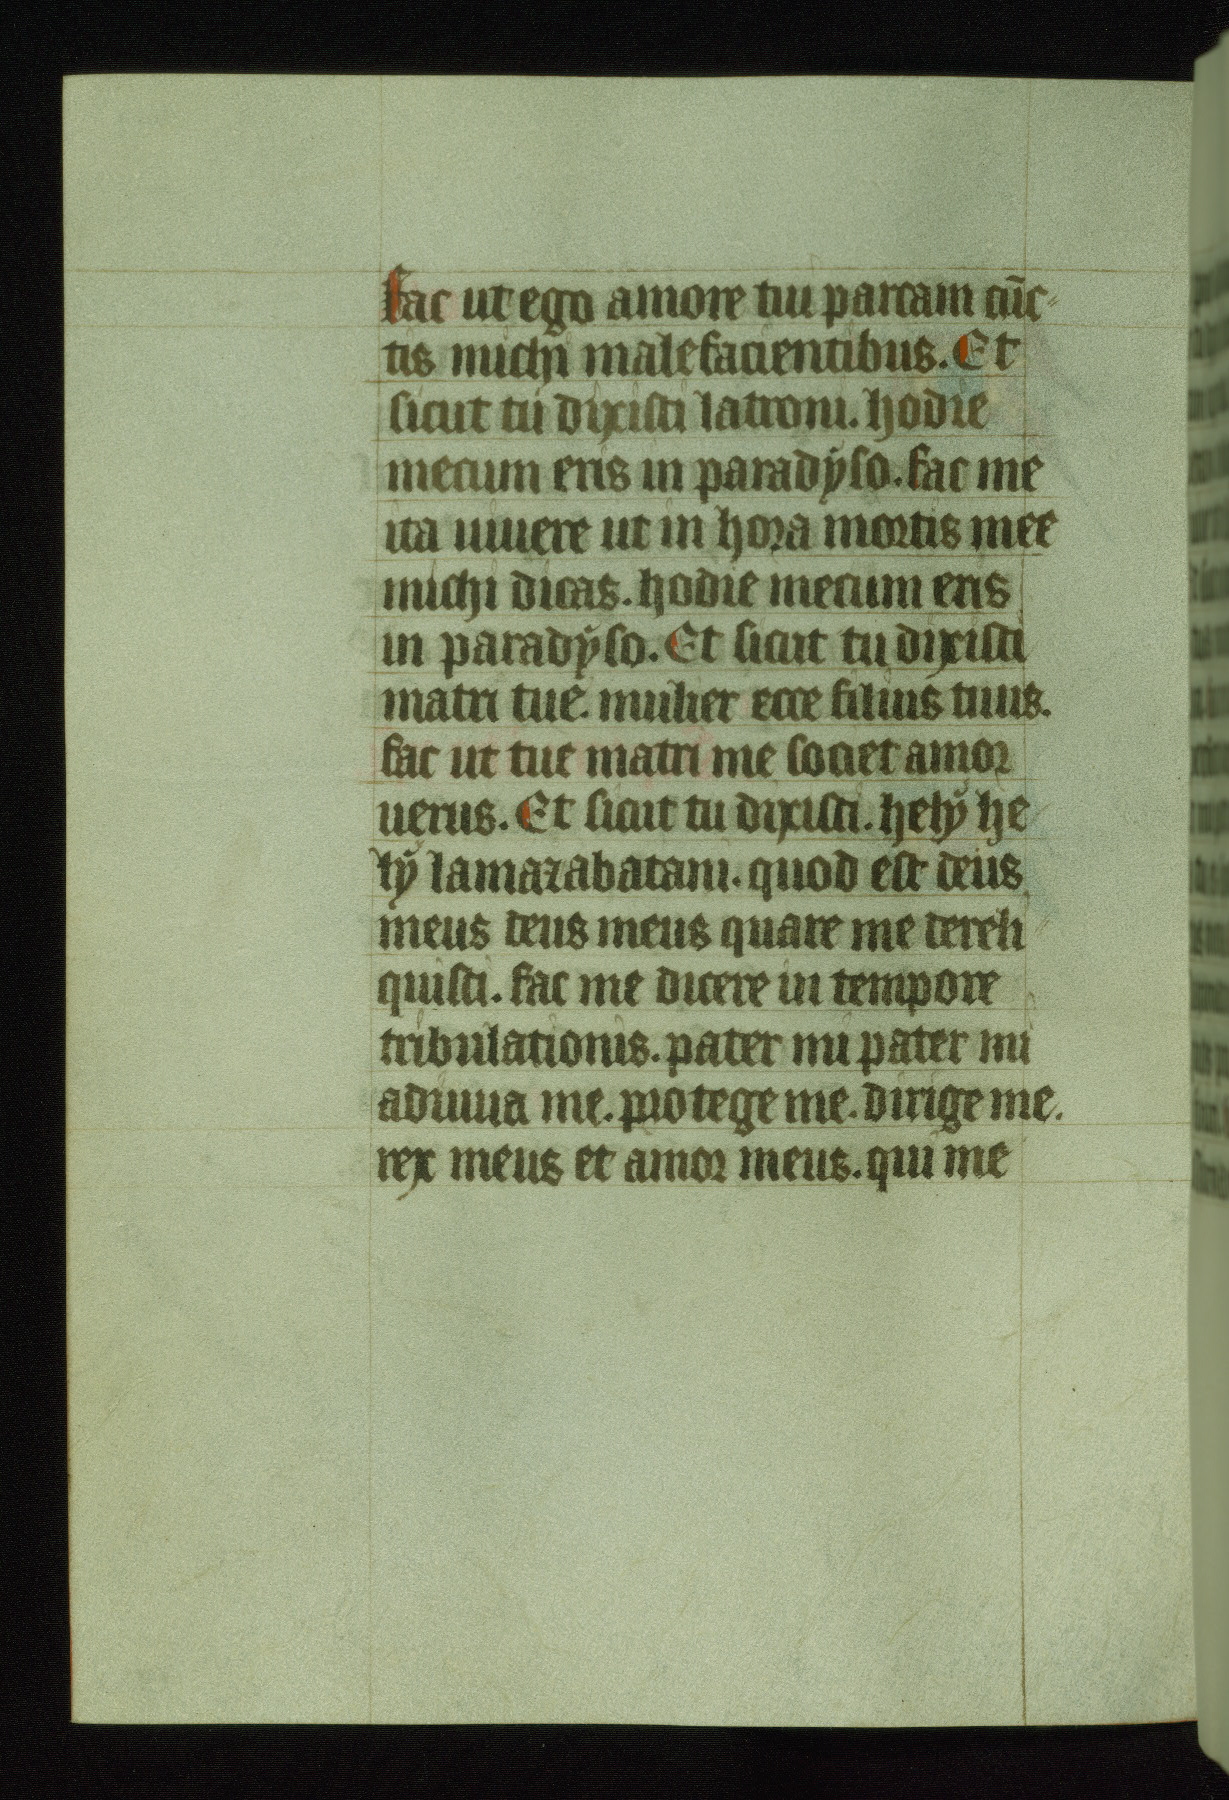 Fac ut ego amore tui parcam cūc-
tis michi malefacientibus. Et
sicut tu dixisti latroni. hodie
mecum eris in paradyso. fac me
ita uiuere ut in hora mortis mee
michi dicas. hodie mecum eris
in paradyso. Et sicut tu dixisti
matri tue. mulier ecce filius tuus.
fac ut tue matri me societ amor
uerus. Et sicut tu dixisti. hely he
ly lamazabatani. quod est deus
meus deus meus quare me dereli
quisti. fac me dicere in tempore
tribulationis. pater mi pater mi
adiuua me. protege me. dirige me.
rex meus et amor meus. qui me